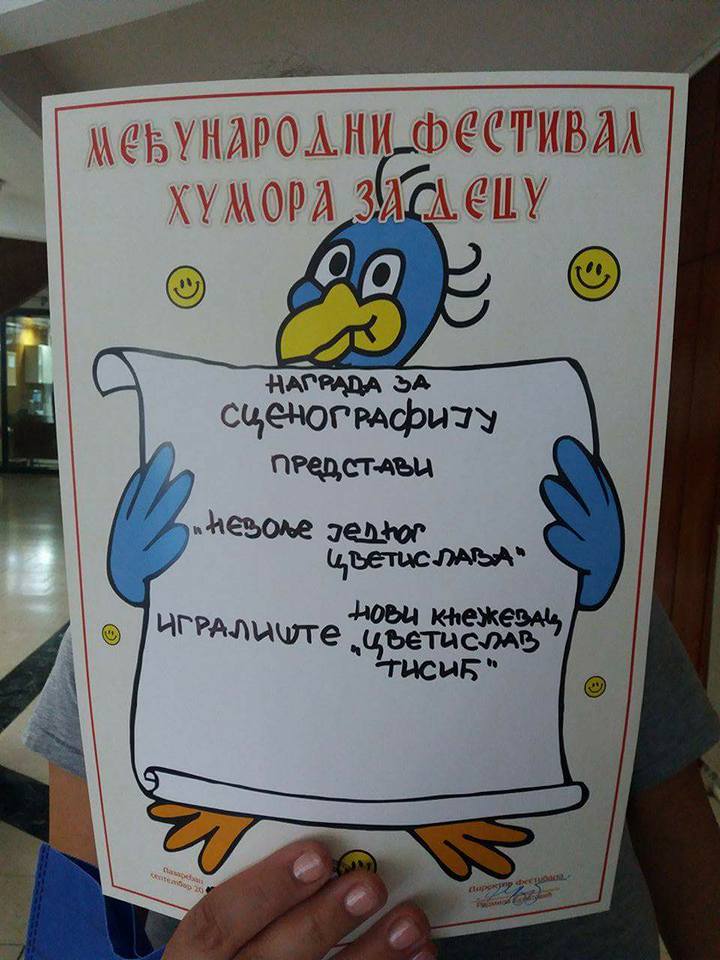 МЕЂУНАРОДНИ ФЕСТИВАЛ
ХУМОРА ЗА ДЕЦУ
НАГРАДА ЗА
СЦЕНОГРАФИЈУ
ПРЕДСТАВИ
„НЕВОЉЕ ЈЕДНОГ
ЦВЕТИСЛАВА"
ИГРАЛИШТЕ НОВИ КНЕЖЕВАЦ
„ЦВЕТИСЛАВ
ТИСИЋ"
Лазаревац
септембар 20
Директор фестивала